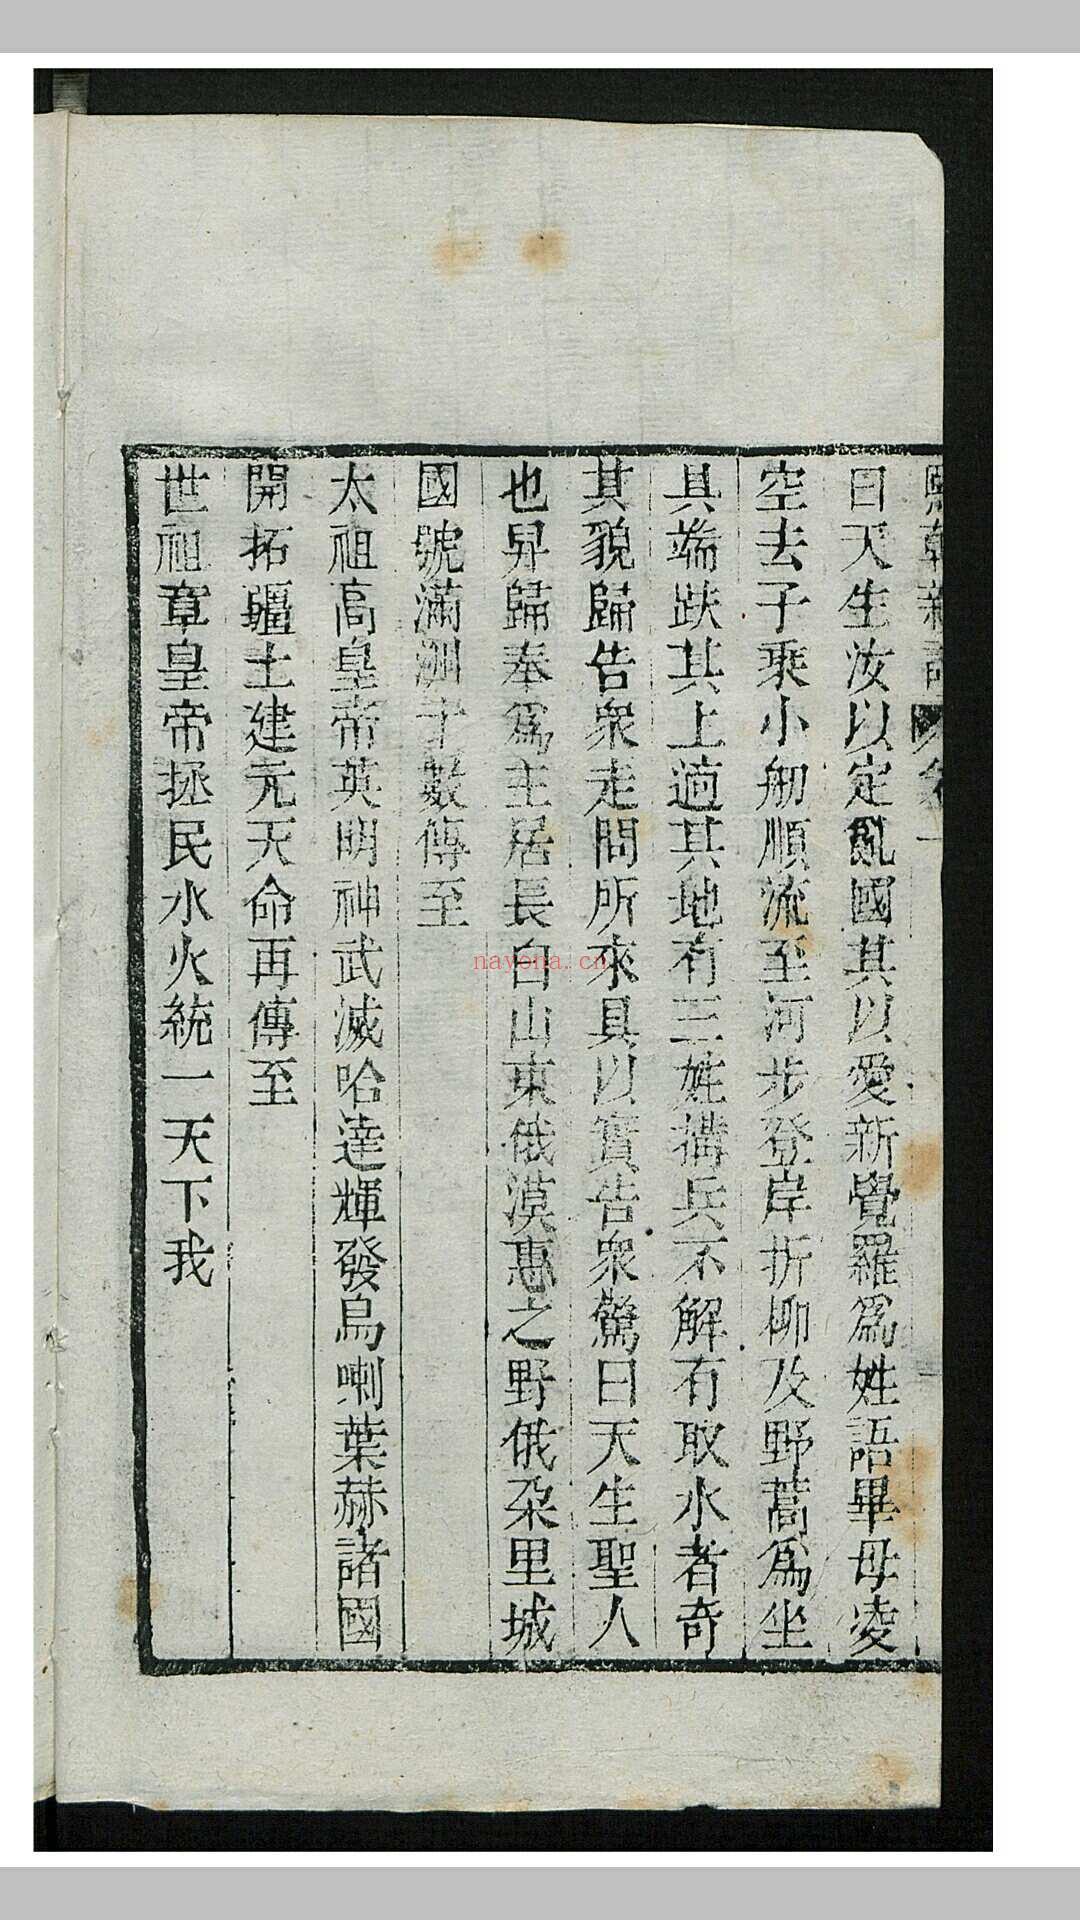 熙朝新語 卷一
曰天生汝以定亂國其以愛新覺羅爲姓語畢母凌
空去子乘小舠順流至河步登岸折柳及野蒿爲坐
具端趺其上適其地有三姓搆兵不解有取水者奇
其貌歸告衆走問所來具以實告衆驚曰天生聖人
也舁歸奉爲主居長白山東俄漠惠之野俄朶里城
國號滿洲十數傳至
太祖高皇帝英明神武滅哈達輝發烏喇葉赫諸國
開拓疆土建元天命再傳至
世祖章皇帝拯民水火統一天下我
nayona.cn